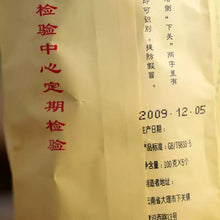 侧"下关"两字呈有
即可识别,谨防假冒。
检验中心定期检验
2009.12.05
生产日期:
产品标准:GB/T9833-5
净含量:100克X5个
制造者地址:
云南省大理市下关镇